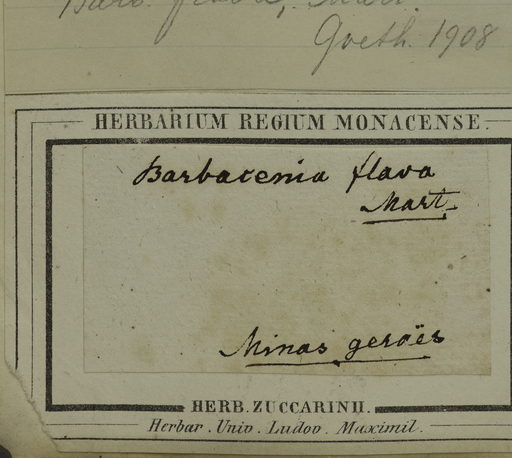 Barb. flava, Mart.
Goeth. 1908
HERBARIUM REGIUM MONACENSE.
Barbacenia flava
Mart.
Minas geraës
HERB. ZUCCARINII.
Herbar. Univ. Ludov. Maximil.